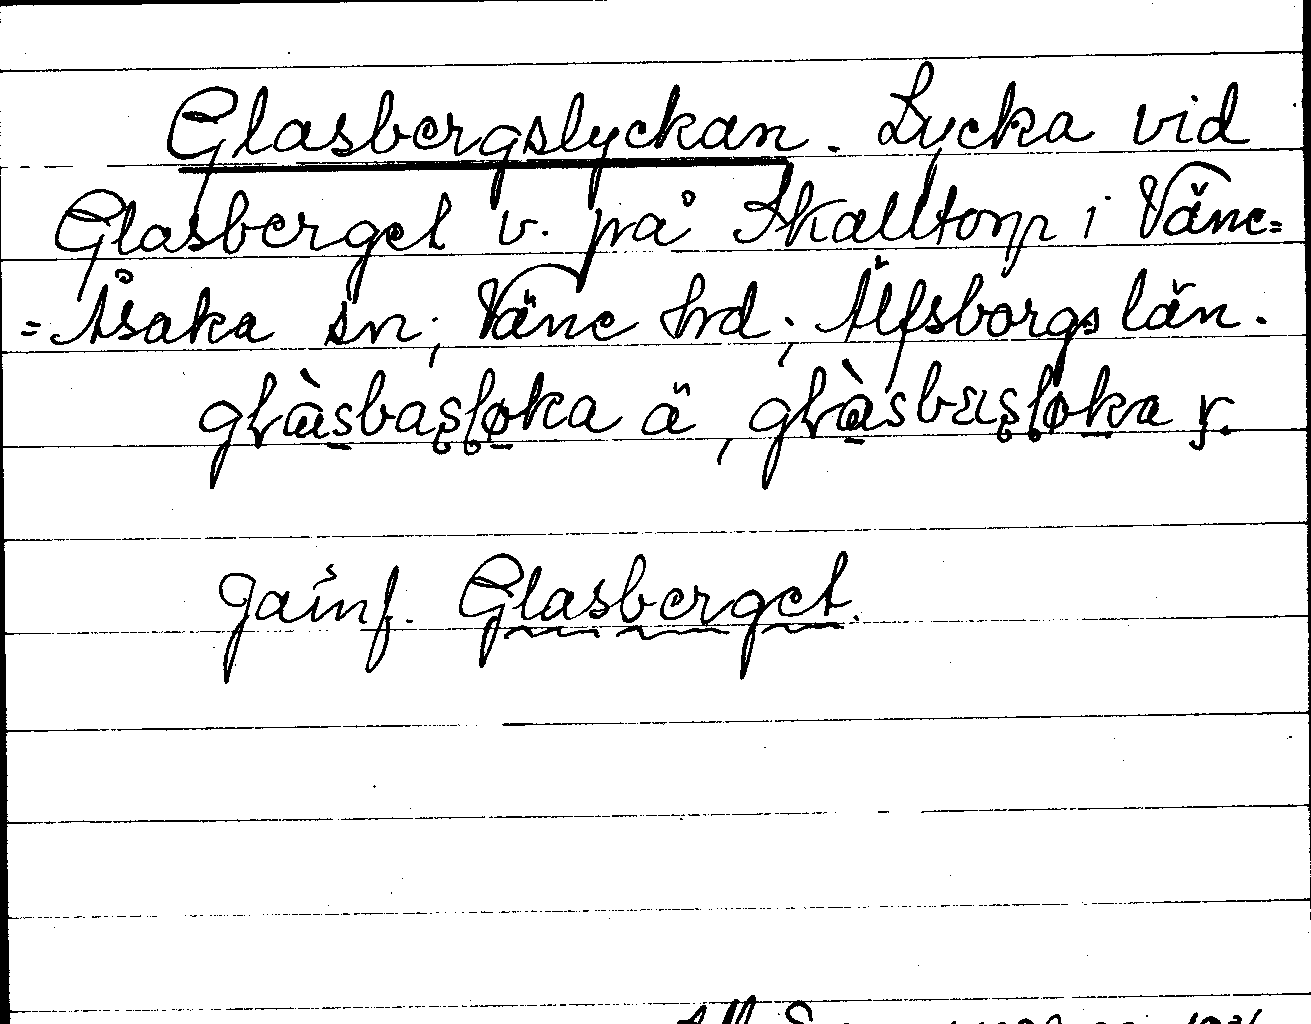 Glasbergslyckan. Lycka vid
Glasberget v. på Skalltorp i Väne=
=Åsaka sn, Väne hd, Älfsborgs län.
ä, y.
Jämf. Glasberget.